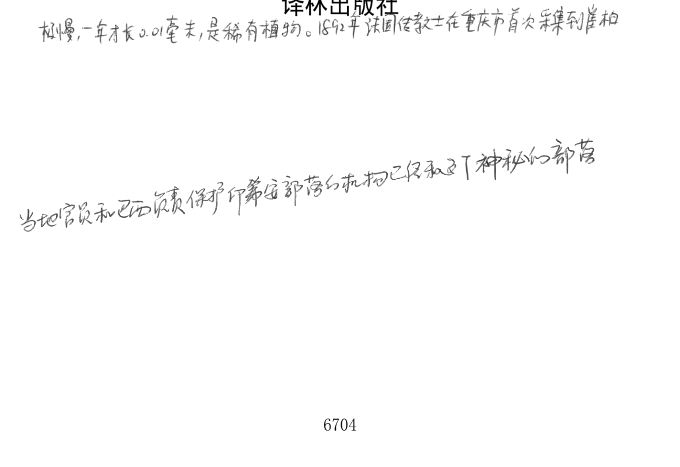 译林出版社
极慢,一年才长0.01毫米,是稀有植物。1892年法国传教士在重庆市首次采集到崖柏
当地官员和巴西负责保护印第安部落的机构已经和这个神秘的部落
6704